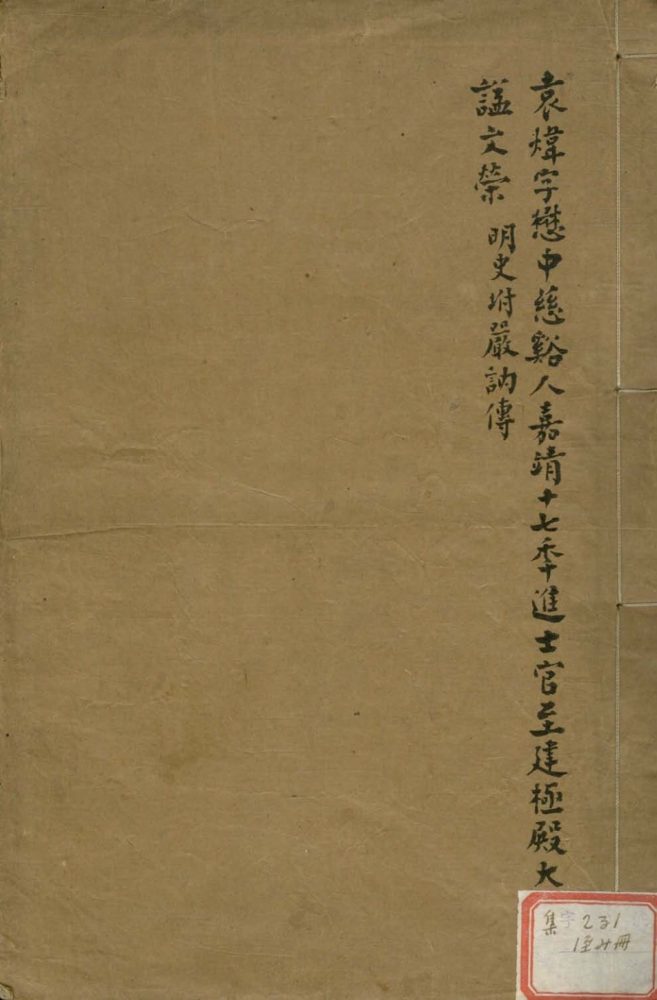 袁煒字懋中慈谿人嘉靖十七秊進士官至建極殿大
諡文榮 明史坿嚴訥傳
集字231